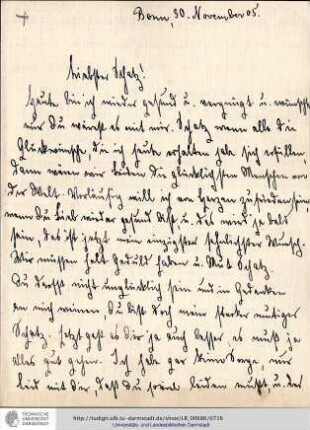 Bonn, 30. November 05.
Liebster Schatz!
Heute bin ich wieder gesund u. vergnügt u. wünschte
nur Du wärest es mit mir. Schatz wenn alle die
Glückwünsche, die ich heute erhalten habe sich erfüllen,
dann wären wir beiden die glücklichsten Menschen von
der Welt. Vorläufig will ich von Herzen zufrieden sein,
wenn Du Lieb wieder gesund bist, u. das wird ja bald
sein, das ist jetzt mein einzigster sehnlichster Wunsch.
Wir müssen halt Geduld haben u. Mut Schatz.
Du darfst nicht unglücklich sein und in Gedanken
an mich weinen Du bist doch mein starker mutiger
Schatz, jetzt geht es Dir ja auch besser es muß ja
alles gut gehen. Ich habe gar keine Sorge, nur
leid mit Dir, daß Du soviel leiden mußt, u. der
TECHNISCHE
UNIVERSITÄT
DARMSTADT
http://tudigit.ulb.tu-darmstadt.de/show/LB_00698/0716
Universitäts- und Landesbibliothek Darmstadt